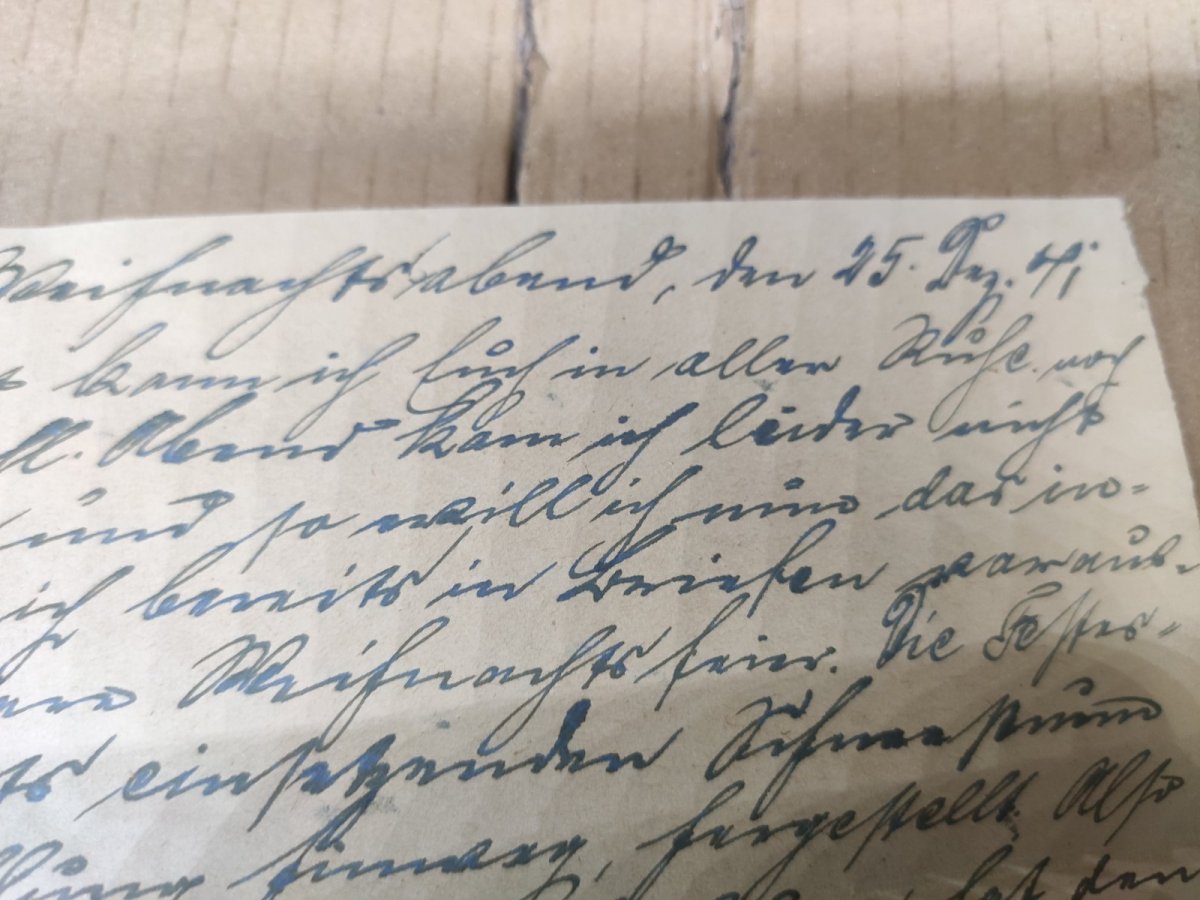 Weihnachtsabend, den 25. Dez. 41
kann ich Euch in aller Ruhe noch
Hl. Abend kann ich leider nicht
und so will ich nun das in-
ich bereits in Briefen voraus-
Weihnachtsfeier. Die Festes-
einsetzenden Schneesturm
hinweg, hergestellt. Also
hat den